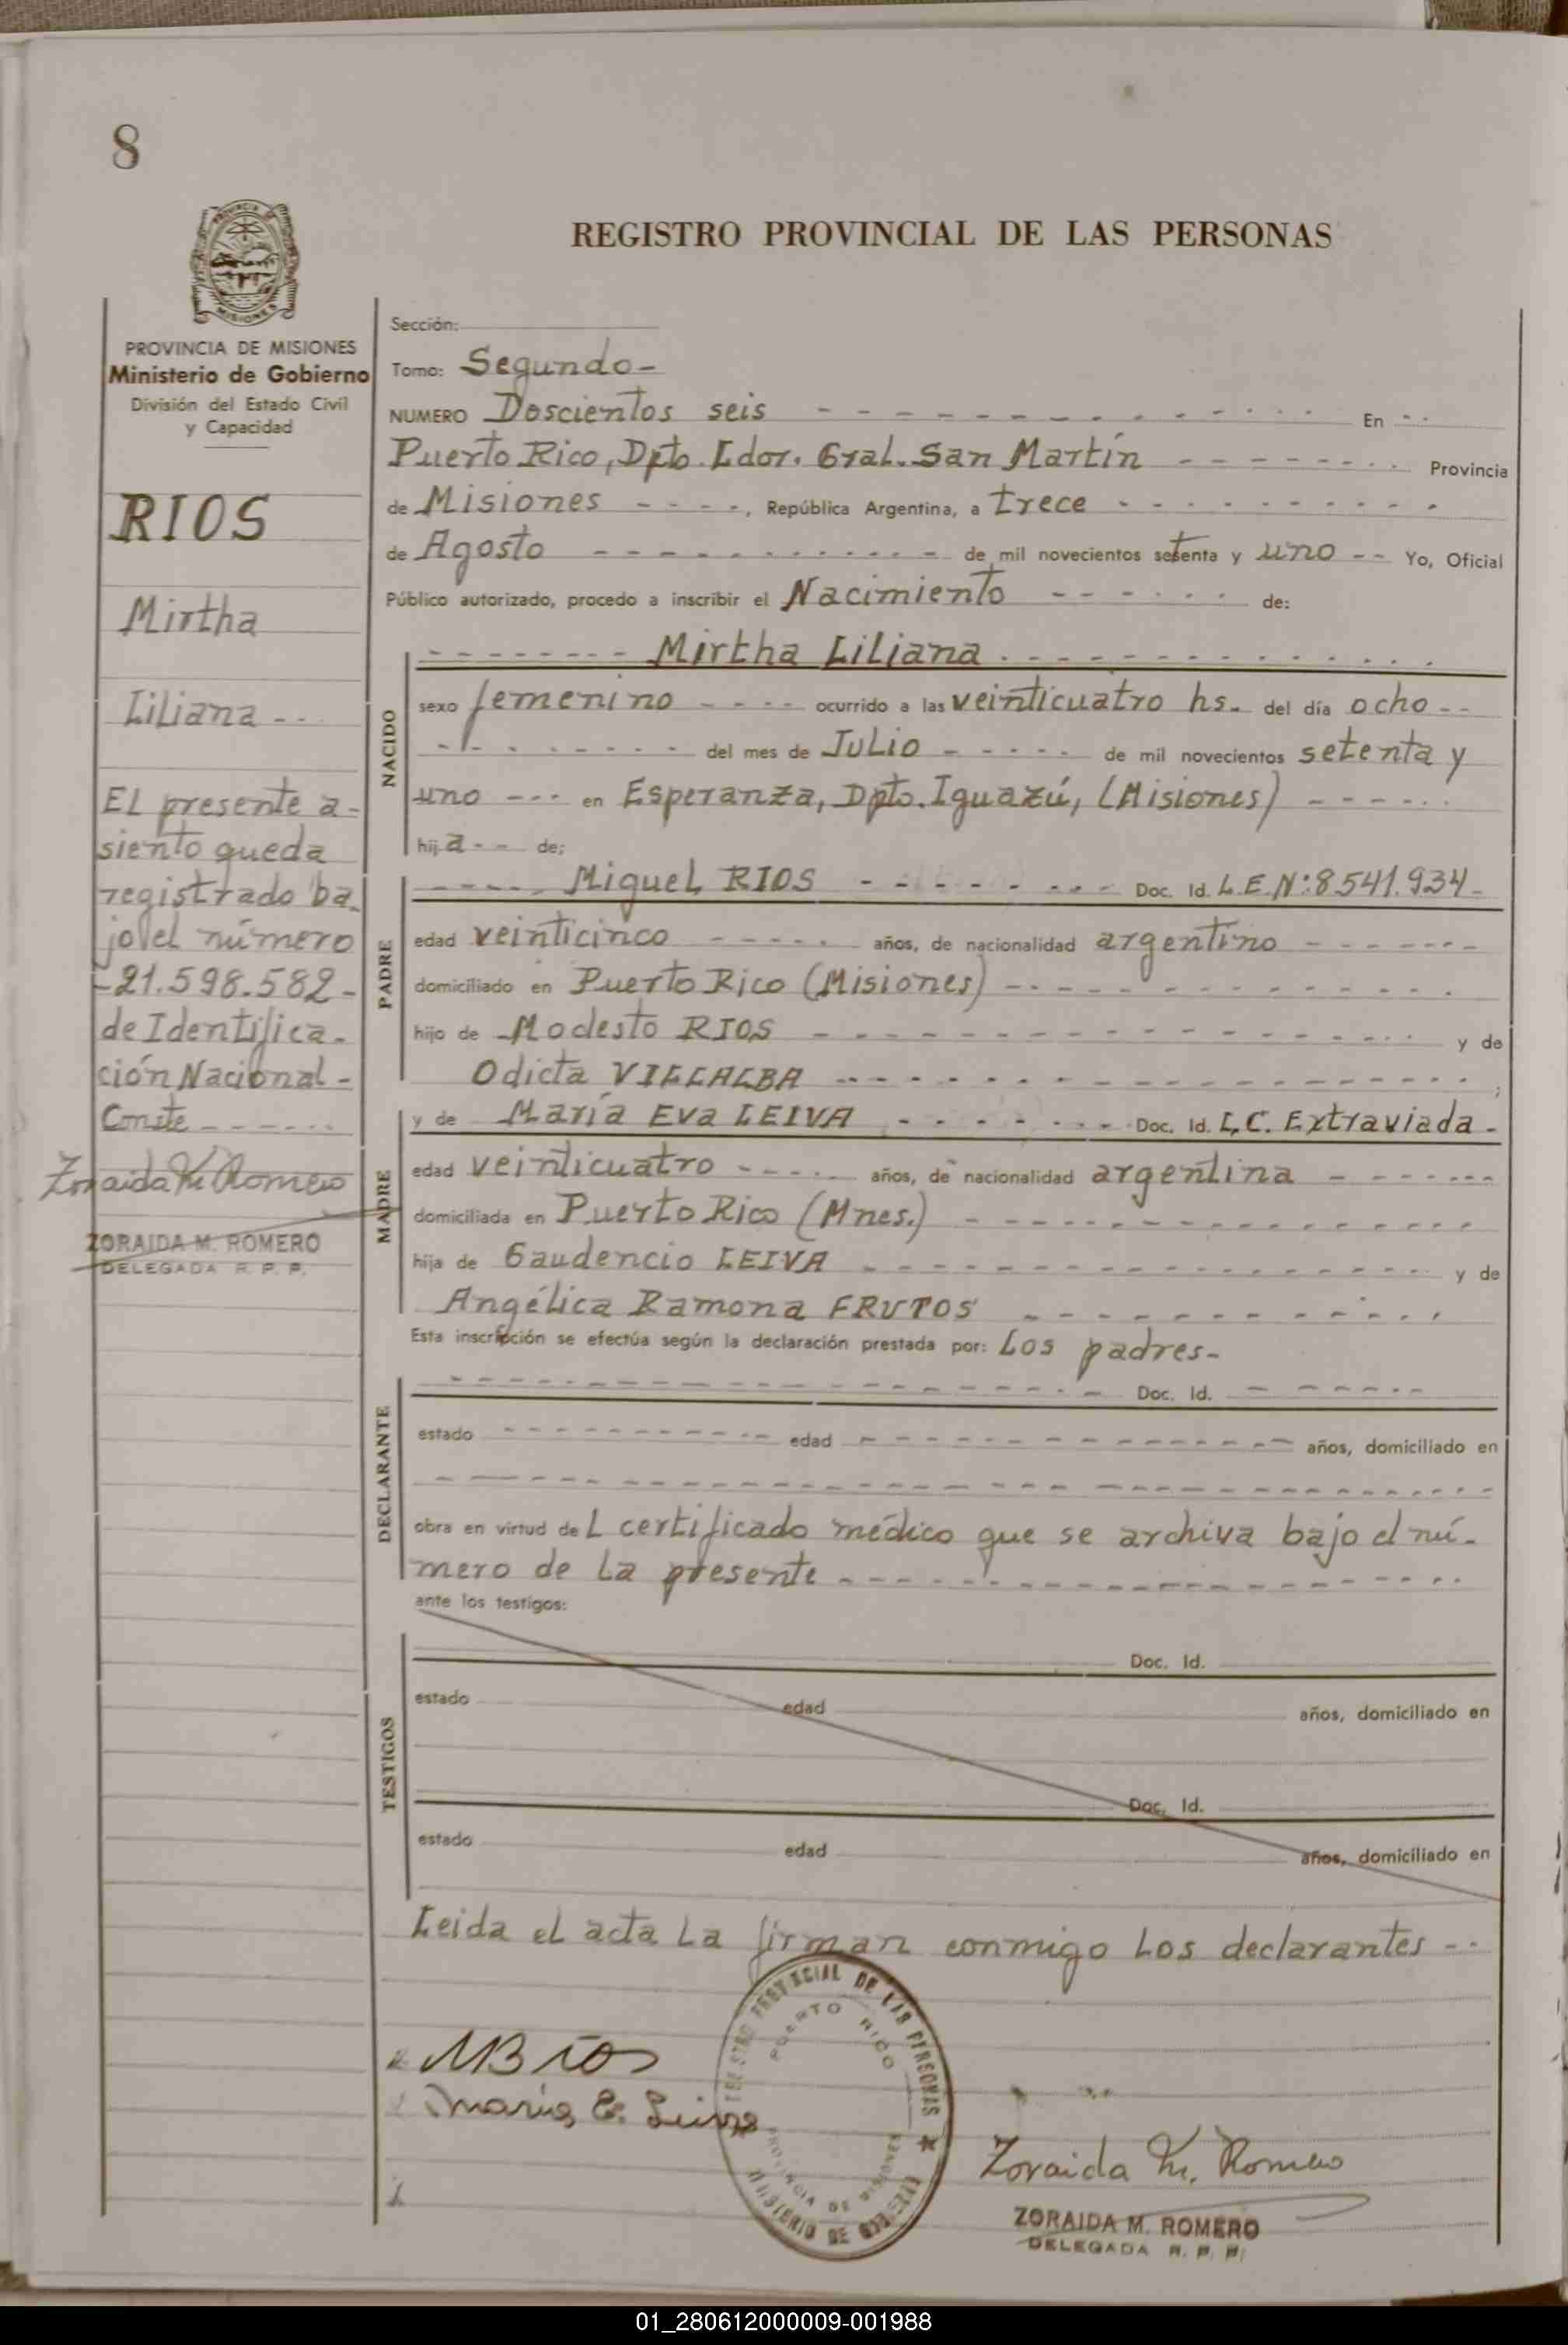 8
REGISTRO PROVINCIAL DE LAS PERSONAS
PROVINCIA DE MISIONES
Ministerio de Gobierno
División del Estado Civil
y Capacidad
RIOS
Mirtha
Liliana - - -
El presente a-
siento queda
registrado ba-
jo el número
-21.598.582-
de Identifica-
ción Nacional-
Conste - - - - - -
Zoraida M. Romero
ZORAIDA M. ROMERO
DELEGADA R. P. P.
Sección:
Tomo: Segundo-
NUMERO Doscientos seis - - - En - -
Puerto Rico, Dpto. Ldor. Gral. San Martín - - - Provincia
de Misiones - - - -, República Argentina, a trece - - -
de Agosto - - - de mil novecientos setenta y uno - - Yo, Oficial
Público autorizado, procedo a inscribir el Nacimiento - - - de:
NACIDO
- - - Mirtha Liliana - - -
sexo femenino - - - - ocurrido a las veinticuatro hs. del día ocho - -
- - - del mes de Julio - - - de mil novecientos setenta y
uno - - - en Esperanza, Dpto. Iguazú, (Misiones) - - -
hija - - de:
PADRE
- - - Miguel RIOS - - - Doc. Id. L.E.Nº:8541.934-
edad veinticinco - - - años, de nacionalidad argentino - - -
domiciliado en Puerto Rico (Misiones) - - -
hijo de Modesto RIOS - - - y de
Odicta VILLALBA - - - ;
MADRE
y de María Eva LEIVA - - - Doc. Id. L.C. Extraviada-
edad veinticuatro - - - años, de nacionalidad argentina - - -
domiciliada en Puerto Rico (Mnes.) - - -
hija de Gaudencio LEIVA - - - y de
Angélica Ramona FRUTOS - - -
Esta inscripción se efectúa según la declaración prestada por: Los padres-
DECLARANTE
- - - Doc. Id. - - -
estado - - - edad - - - años, domiciliado en
- - -
obra en virtud del certificado médico que se archiva bajo el nú-
mero de la presente - - -
ante los testigos:
TESTIGOS
Doc. Id.
estado edad años, domiciliado en
Doc. Id.
estado edad años, domiciliado en
Leida el acta la firman conmigo los declarantes - -
María E. Leiva
REGISTRO PROVINCIAL DE LAS PERSONAS
PUERTO RICO
PROVINCIA DE MISIONES
MINISTERIO DE GOBIERNO
Zoraida M. Romero
ZORAIDA M. ROMERO
DELEGADA R. P. P.
01_280612000009-001988